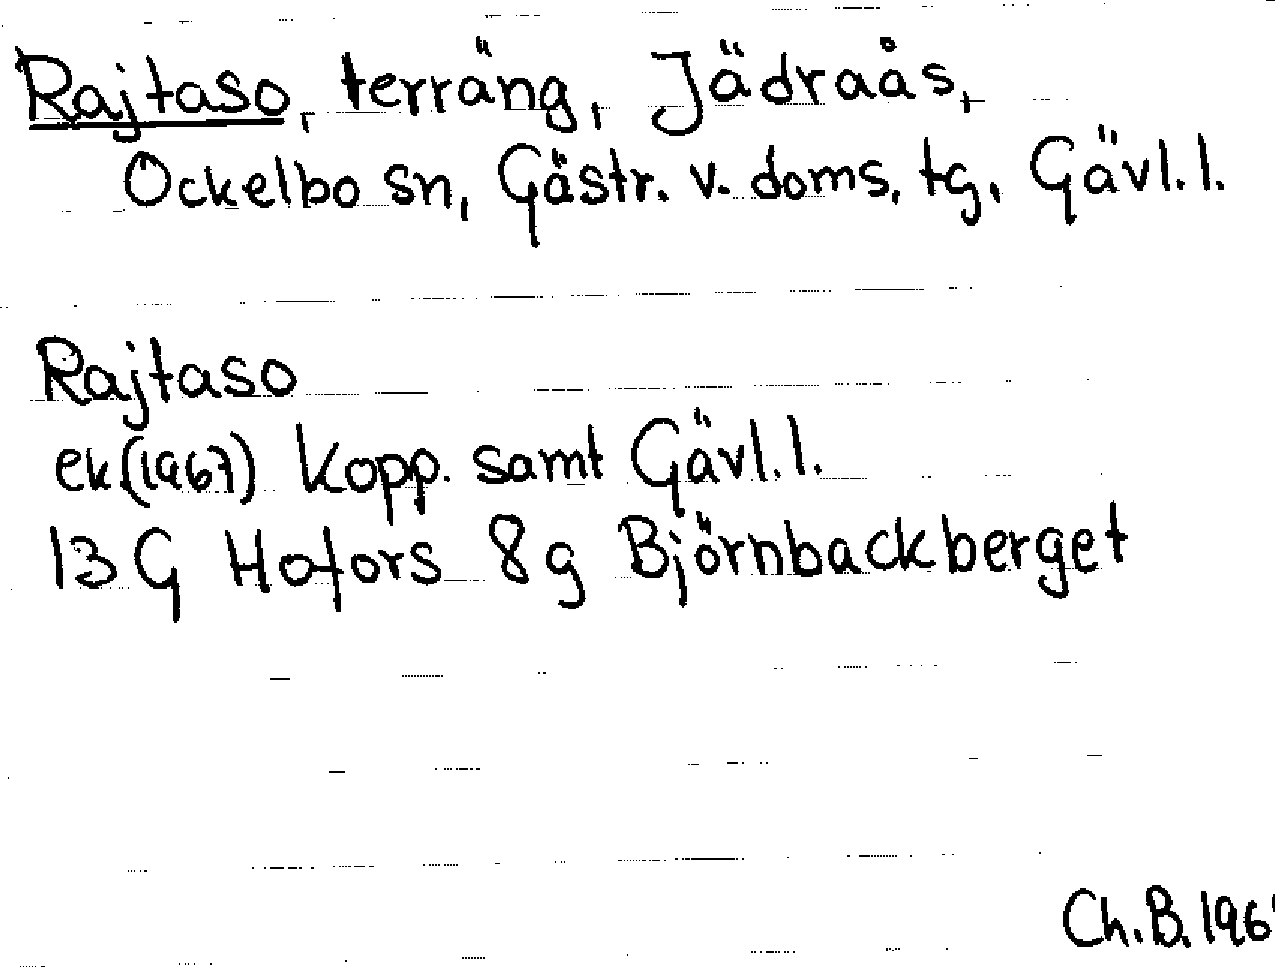 Rajtaso, terräng, Jädraås,
Ockelbo sn, Gästr. v. doms. tg, Gävl. l.
Rajtaso
ek (1967) Kopp. samt Gävl. l.
13 G Hofors 8g Björnbackberget
Ch. B. 196